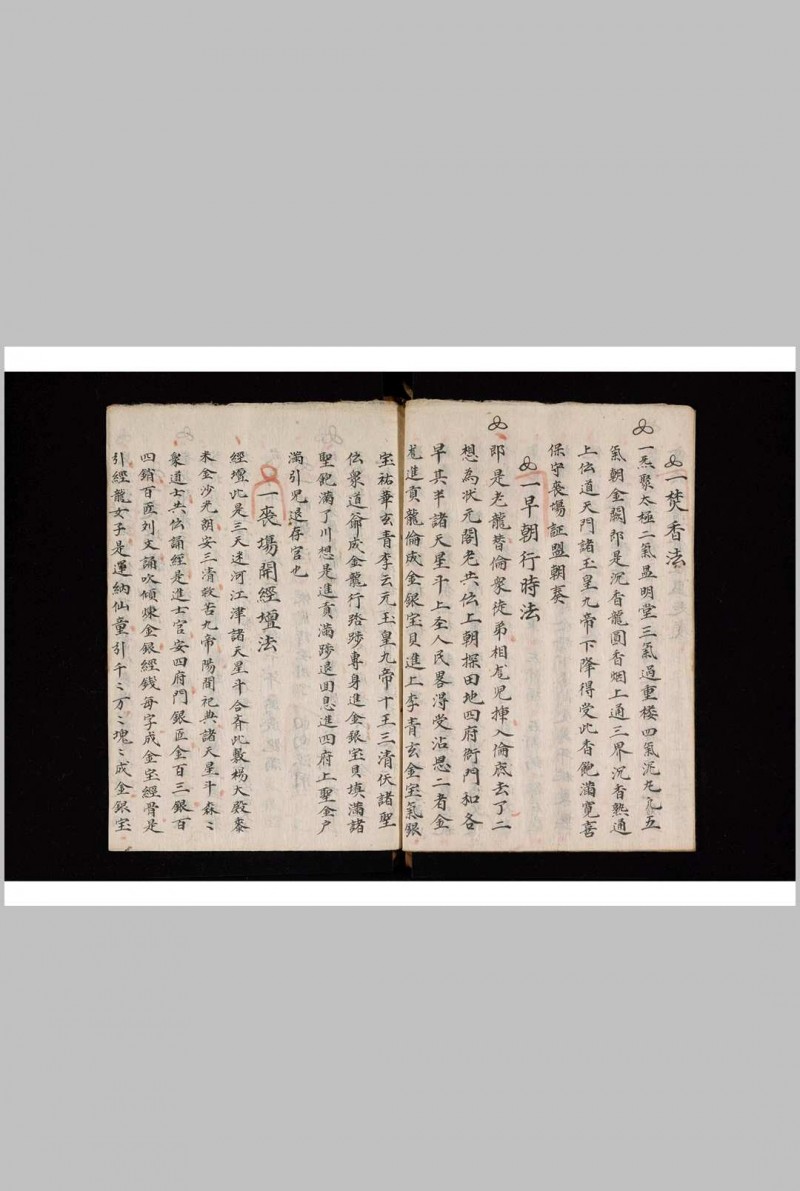 一焚香法
一炁聚太極二氣显明堂三氣過重楼四氣泥丸九五
氣朝金闕即是沉香龍圓香烟上通三界沉香熟通
上伝道天門諸玉皇九帝下降得受此香飽滿寛喜
保守丧場証盟朝奏
一早朝行時法
即是老龍替倫衆徒弟相尨児揷入倫底去了二
想為状元閣老共伝上朝探田地四府衙門和各
早其半諸天星斗上至人民畧淂受沾恩二者金
尨進貢龍倫成金銀宝貝進上李青玄金宝氣銀
宝祐華玄青李云元玉皇九帝十王三清伏諸聖
伝衆道爺成金龍行路踄專身進金銀宝貝填滿諸
聖飽滿了川想是進貢滿踄退囬息進四府上聖金户
滿引児退存宫也
一丧塲開經壇法
經壇此是三天迷河江津諸天星斗合斉此数楊大殿泰
米金沙光朗安三清救苦九帝陽間祀典諸天星斗森〻
衆道士共伝誦經是進士官安四府門銀匠金百三銀百
四銷百匠刘文誦吹傾煉金銀經錢每字成金宝經骨是
引經龍女子是運納仙童引千〻万〻塊〻成金銀宝